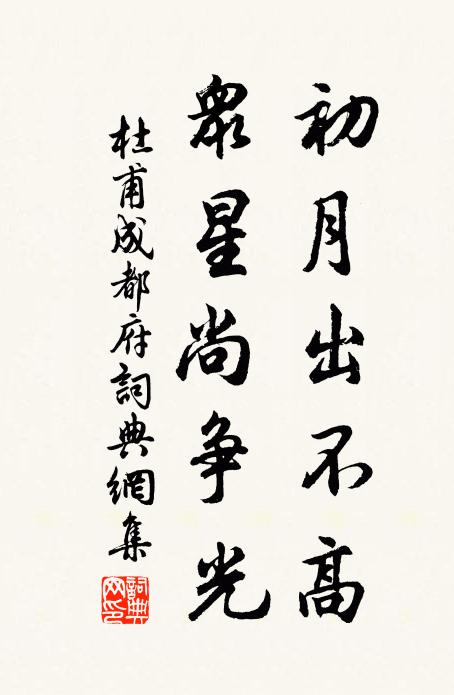 初月出不高
衆星尚争光
杜甫成都府詞典網集
詞典網印